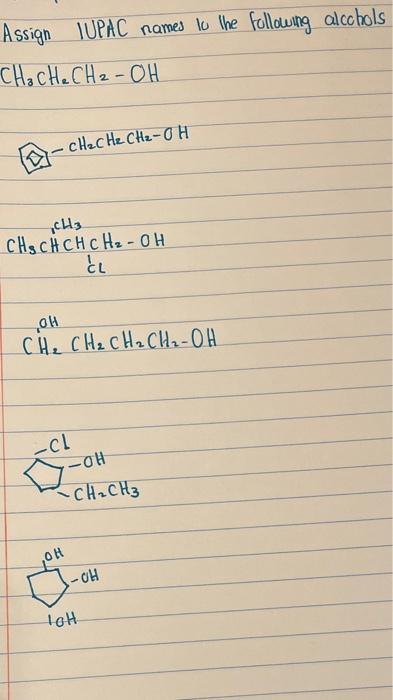 Assign IUPAC names to the following alcohols
CH₃CH₂CH₂-OH
-CH₂CH₂CH₂-OH
CH₃
CH₃CHCHCH₂-OH
CL
OH
CH₂ CH₂CH₂CH₂-OH
-Cl
-OH
-CH₂CH₃
OH
-OH
OH